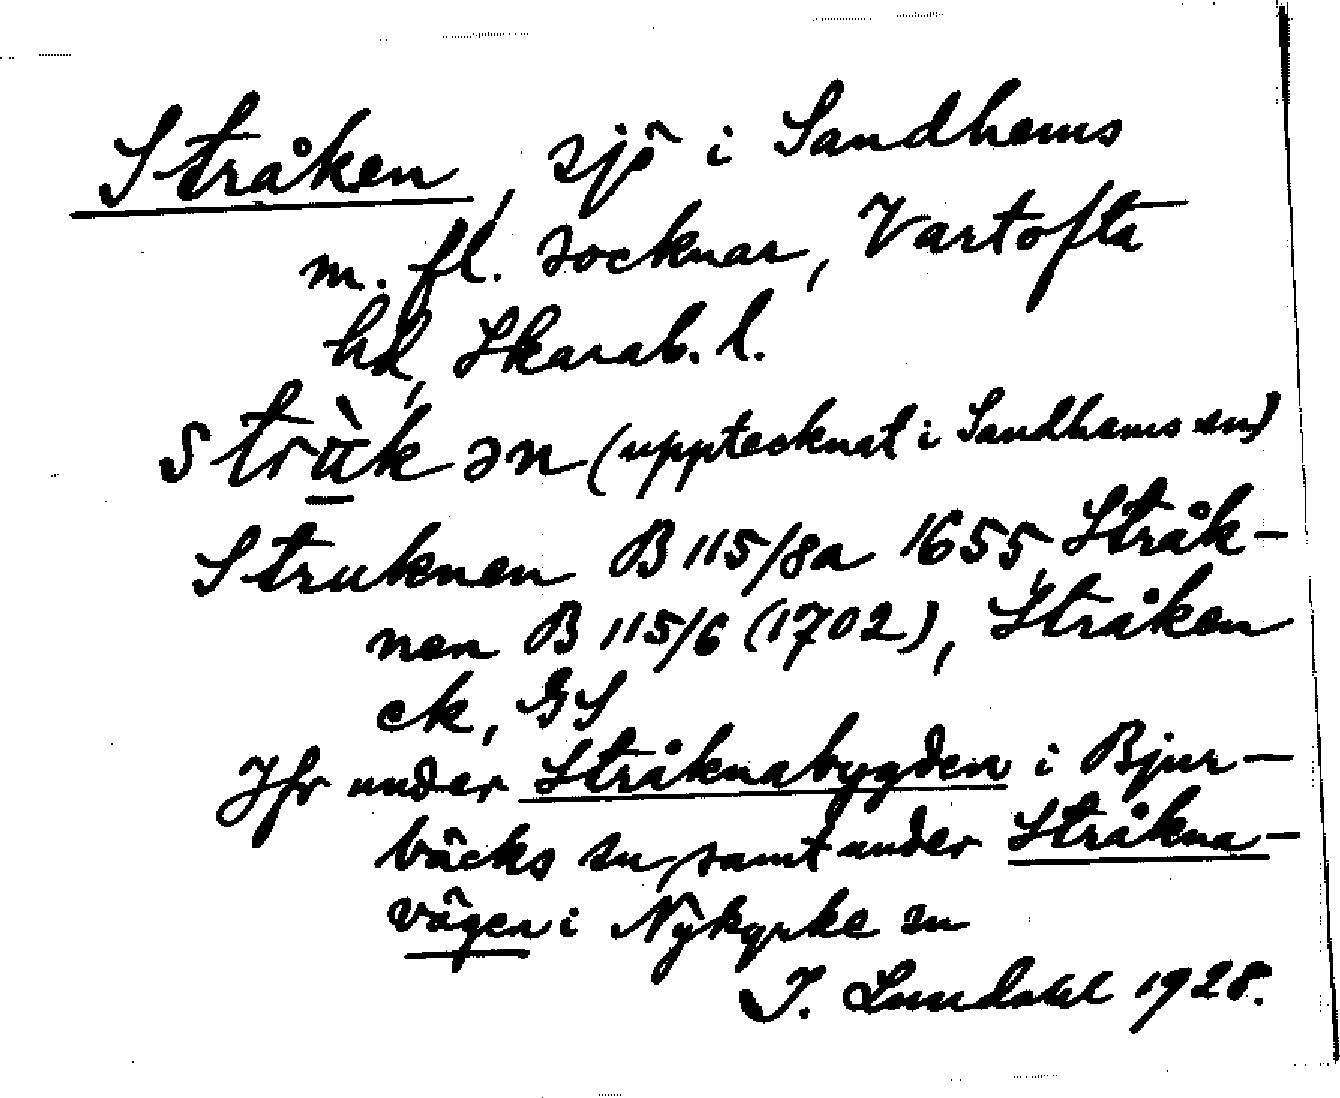 Stråken, sjö i Sandhems
m. fl. socknar, Vartofta
hd, Skarab. l.
stràk ən (upptecknat i Sandhems sn)
Struknen B 115/8a 1655, Stråk-
nen B 115/6 (1702), Stråken
ek, GS
Jfr under Stråknabygden i Bjur-
bäcks sn, samt under Stråkna-
vägen i Nykyrke sn
I. Lundahl 1928.